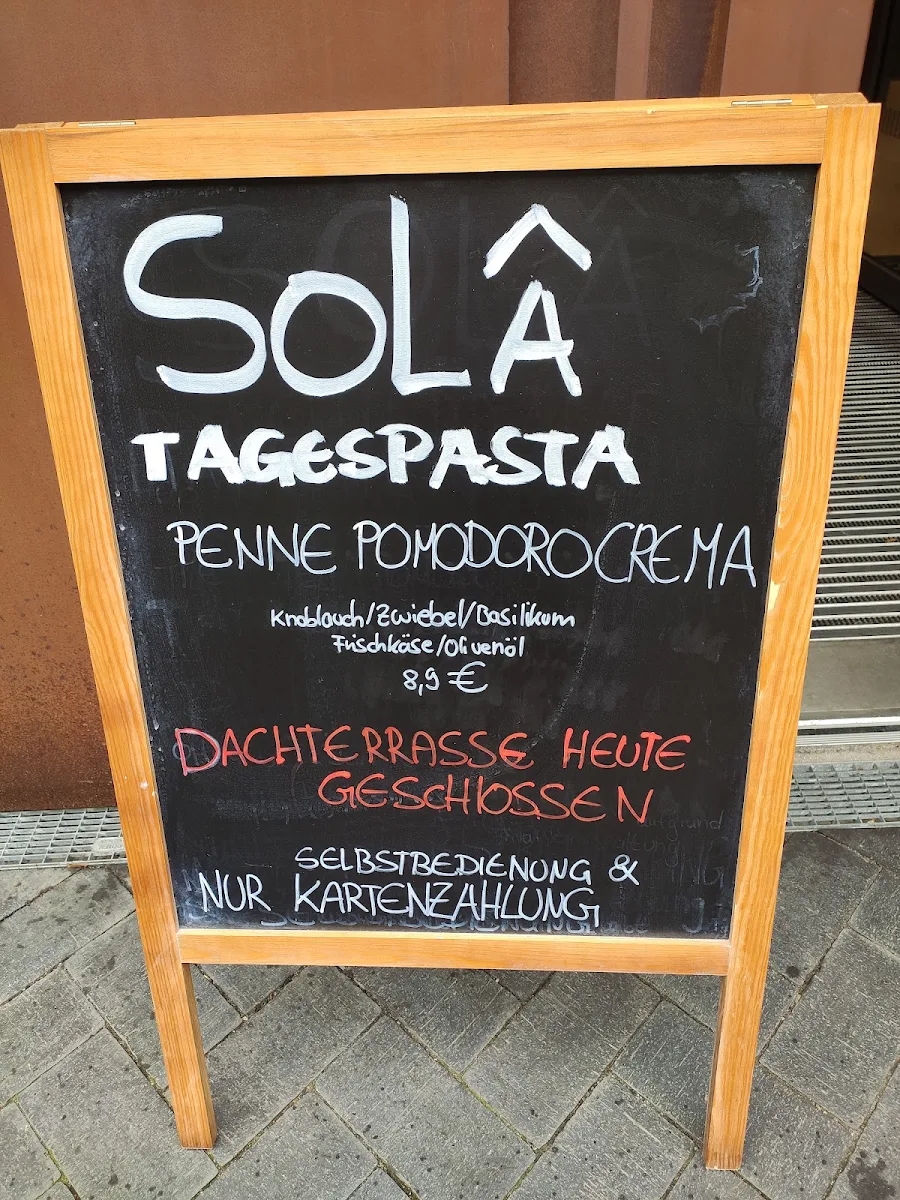 SOLÂ
TAGESPASTA
PENNE POMODOROCREMA
Knoblauch/Zwiebel/Basilikum
Frischkäse/Olivenöl
8,9 €
DACHTERRASSE HEUTE
GESCHLOSSEN
SELBSTBEDIENUNG &
NUR KARTENZAHLUNG